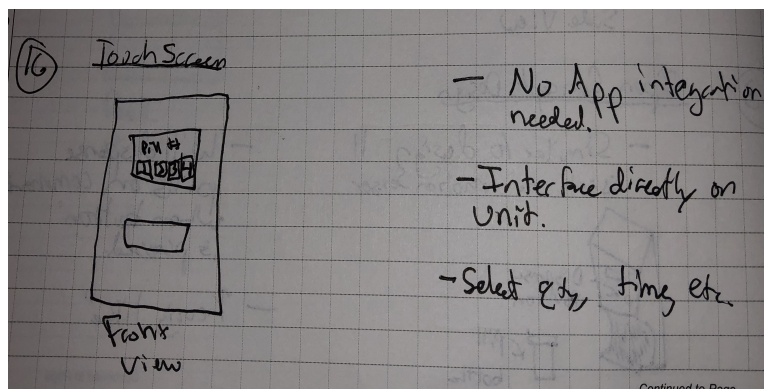 16
Touch Screen
Pill #
1 2 3 4
Front
View
- No App integration
needed.
- Interface directly on
Unit.
- Select qty, time etc.
Continued to Page